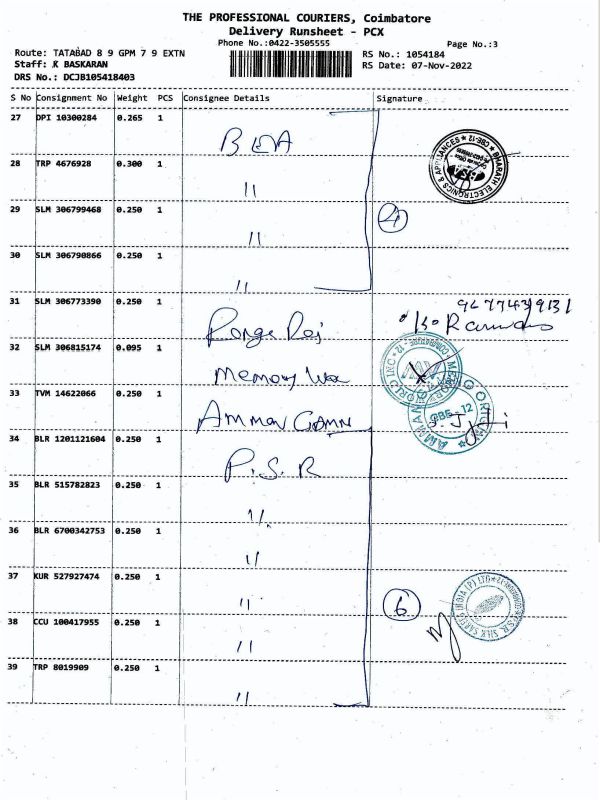 THE PROFESSIONAL COURIERS, Coimbatore
Delivery Runsheet - PCX
Phone No.:0422-3505555
Page No.:3
Route: TATABAD 8 9 GPM 7 9 EXTN
RS No.: 1054184
Staff: K BASKARAN
RS Date: 07-Nov-2022
DRS No.: DCJB105418403
S No Consignment No Weight PCS Consignee Details Signature
27 DPI 10300284 0.265 1
BEA
28 TRP 4676928 0.300 1
"
29 SLM 306799468 0.250 1
"
4
30 SLM 306790866 0.250 1
"
31 SLM 306773390 0.250 1
32 SLM 306815174 0.095 1
Memory
33 TVM 14622066 0.250 1
Amman
34 BLR 1201121604 0.250 1
P.S.R
35 BLR 515782823 0.250 1
"
36 BLR 6700342753 0.250 1
"
37 KUR 527927474 0.250 1
"
6
38 CCU 100417955 0.250 1
"
39 TRP 8019909 0.250 1
"
BHARATH ELECTRONICS & APPLIANCES
CBE-12